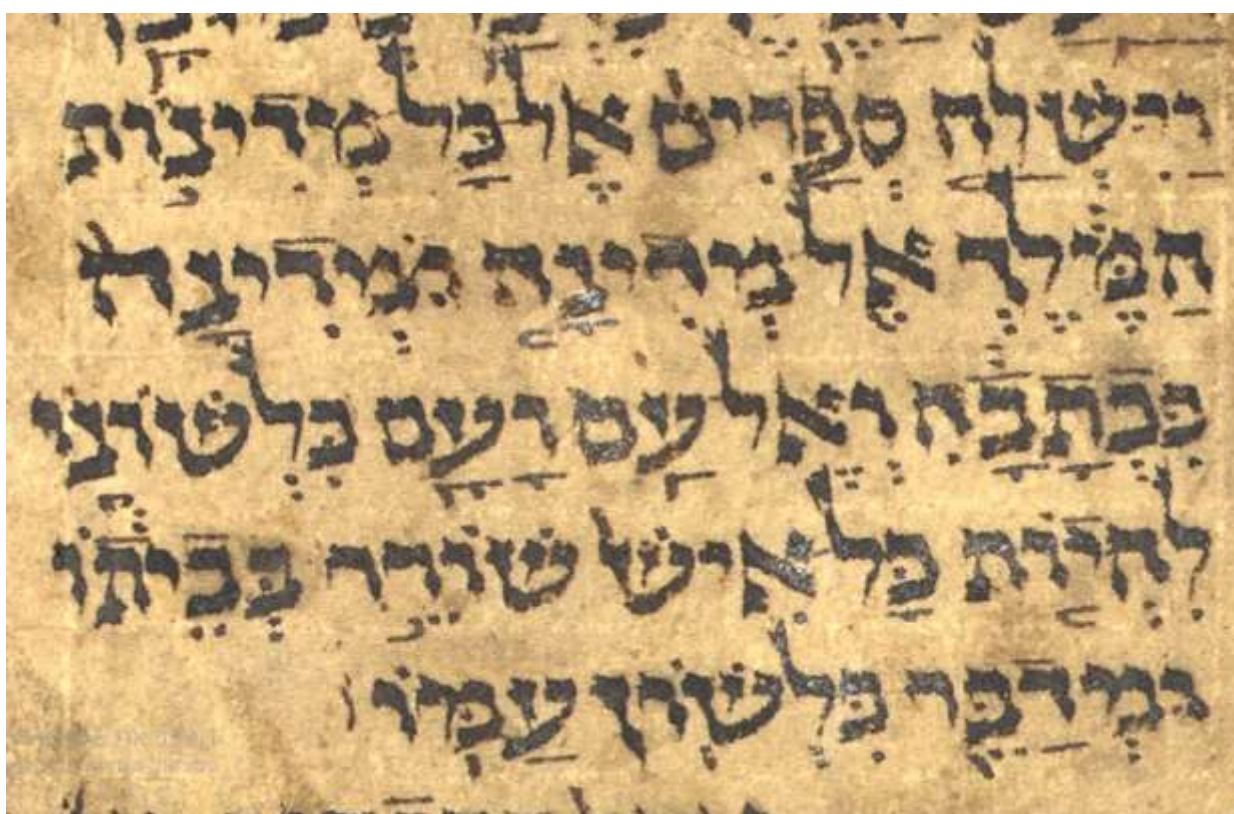 וַיִּשְׁלַח סְפָרִים אֶל כָּל מְדִינוֹת
הַמֶּלֶךְ אֶל מְדִינָה וּמְדִינָה
כִּכְתָבָהּ וְאֶל עַם וָעָם כִּלְשׁוֹנוֹ
לִהְיוֹת כָּל אִישׁ שׂוֹרֵר בְּבֵיתוֹ
וּמְדַבֵּר כִּלְשׁוֹן עַמּוֹ